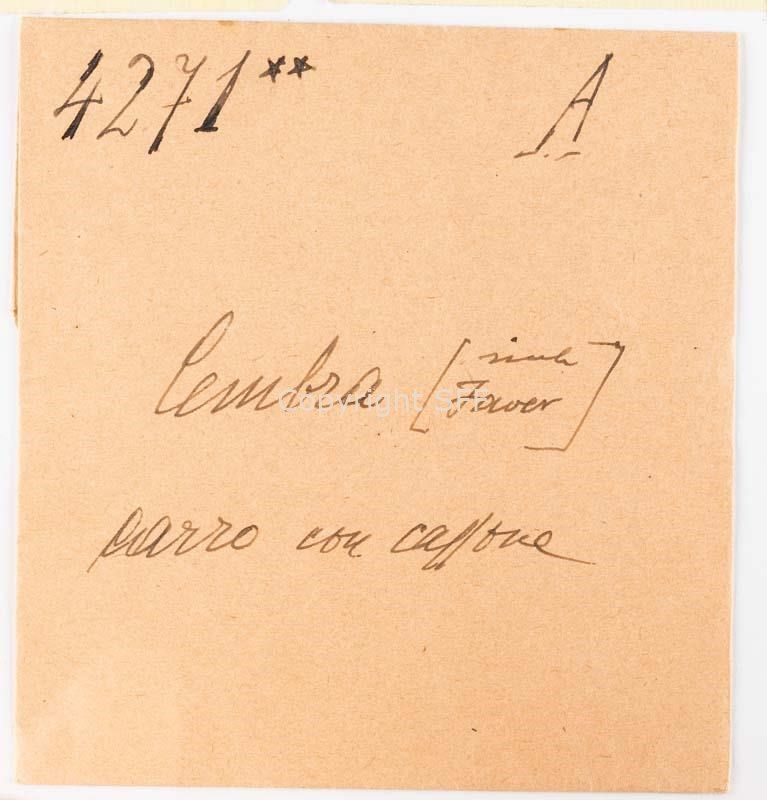 4271** A
Cembra [
Faver ]
carro con cassone
Copyright SFF